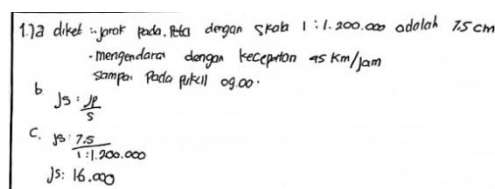 1.)a diket : - jarak pada peta dengan skala 1 : 1.200.000 adalah 7.5 cm
- mengendarai dengan kecepatan 45 km/jam
sampai pada pukul 09.00.
b. Js : Jp
s
C. Js : 7.5
1 : 1.200.000
Js : 16.000